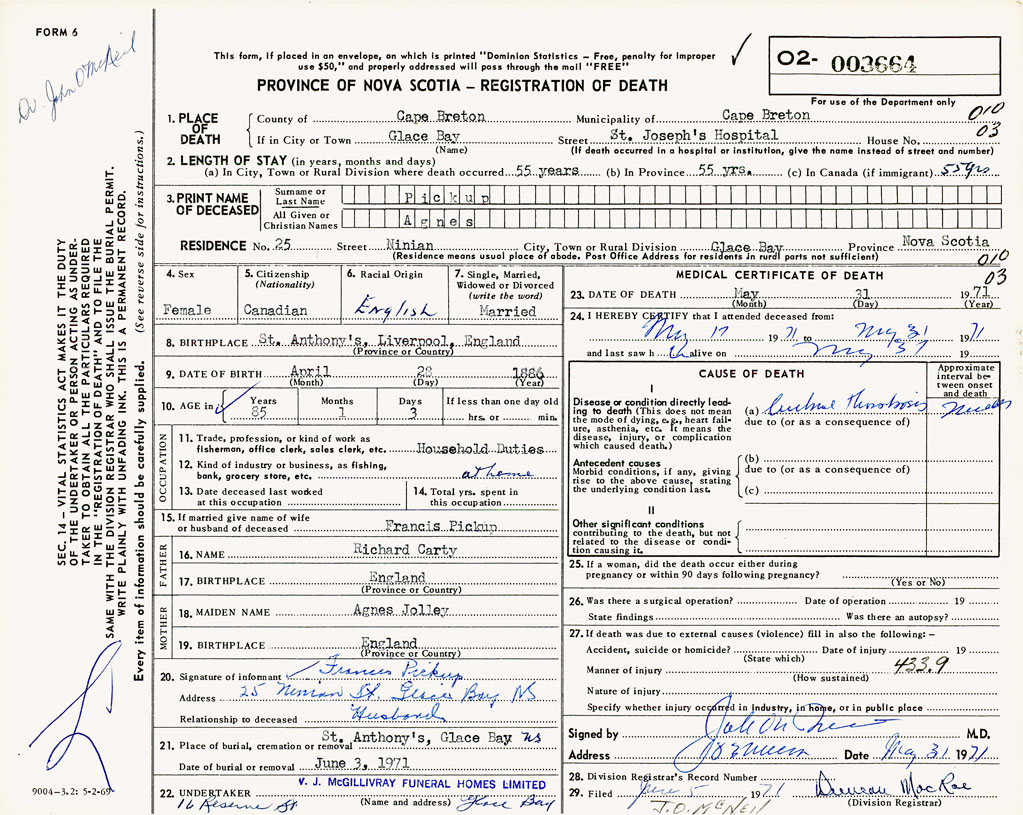 FORM 6
Dr. John O McNeil
This form, if placed in an envelope, on which is printed "Dominion Statistics – Free, penalty for improper
use $50," and properly addressed will pass through the mail "FREE"
PROVINCE OF NOVA SCOTIA – REGISTRATION OF DEATH
✓
02- 003664
For use of the Department only
010
03
SEC. 14 – VITAL STATISTICS ACT MAKES IT THE DUTY
OF THE UNDERTAKER OR PERSON ACTING AS UNDER-
TAKER TO OBTAIN ALL THE PARTICULARS REQUIRED
IN THE "REGISTRATION OF DEATH" AND TO FILE THE
SAME WITH THE DIVISION REGISTRAR WHO SHALL ISSUE THE BURIAL PERMIT.
WRITE PLAINLY WITH UNFADING INK. THIS IS A PERMANENT RECORD.
Every item of information should be carefully supplied. (See reverse side for instructions.)
1. PLACE OF DEATH County of Cape Breton Municipality of Cape Breton
If in City or Town Glace Bay Street St. Joseph's Hospital House No.
(Name) (If death occurred in a hospital or institution, give the name instead of street and number)
2. LENGTH OF STAY (in years, months and days)
(a) In City, Town or Rural Division where death occurred 55 years (b) In Province 55 yrs. (c) In Canada (if immigrant) 55 yrs
3. PRINT NAME OF DECEASED
Surname or Last Name Pickup
All Given or Christian Names Agnes
RESIDENCE No. 25 Street Ninian City, Town or Rural Division Glace Bay Province Nova Scotia
(Residence means usual place of abode. Post Office Address for residents in rural parts not sufficient)
010
03
4. Sex
Female
5. Citizenship
(Nationality)
Canadian
6. Racial Origin
English
7. Single, Married,
Widowed or Divorced
(write the word)
Married
8. BIRTHPLACE St. Anthony's, Liverpool, England
(Province or Country)
9. DATE OF BIRTH April 28 1886
(Month) (Day) (Year)
10. AGE in ✓ Years Months Days If less than one day old
85 1 3 hrs. or min.
OCCUPATION
11. Trade, profession, or kind of work as
fisherman, office clerk, sales clerk, etc. Household Duties
12. Kind of industry or business, as fishing,
bank, grocery store, etc. at home
13. Date deceased last worked
at this occupation
14. Total yrs. spent in
this occupation
15. If married give name of wife
or husband of deceased Francis Pickup
FATHER
16. NAME Richard Carty
17. BIRTHPLACE England
(Province or Country)
MOTHER
18. MAIDEN NAME Agnes Jolley
19. BIRTHPLACE England
(Province or Country)
20. Signature of informant Francis Pickup
Address 25 Ninian St. Glace Bay NS
Relationship to deceased Husband
21. Place of burial, cremation or removal St. Anthony's, Glace Bay NS
Date of burial or removal June 3, 1971
V. J. McGILLIVRAY FUNERAL HOMES LIMITED
22. UNDERTAKER (Name and address) Glace Bay
16 Reserve St
9004–3.2: 5-2-69
MEDICAL CERTIFICATE OF DEATH
23. DATE OF DEATH May 31 1971
(Month) (Day) (Year)
24. I HEREBY CERTIFY that I attended deceased from:
May 17 1971 to May 31 1971
and last saw h er alive on May 31 19
CAUSE OF DEATH
Approximate
interval be-
tween onset
and death
I
Disease or condition directly lead-
ing to death (This does not mean
the mode of dying, e.g., heart fail-
ure, asthenia, etc. It means the
disease, injury, or complication
which caused death.)
(a) Cerebral thrombosis
due to (or as a consequence of)
Antecedent causes
Morbid conditions, if any, giving
rise to the above cause, stating
the underlying condition last.
(b)
due to (or as a consequence of)
(c)
II
Other significant conditions
contributing to the death, but not
related to the disease or condi-
tion causing it.
25. If a woman, did the death occur either during
pregnancy or within 90 days following pregnancy?
(Yes or No)
26. Was there a surgical operation? Date of operation 19
State findings Was there an autopsy?
27. If death was due to external causes (violence) fill in also the following: –
Accident, suicide or homicide? Date of injury 19
(State which)
Manner of injury 433.9
(How sustained)
Nature of injury
Specify whether injury occurred in industry, in home, or in public place
Signed by M.D.
Address Date May 31 1971
28. Division Registrar's Record Number
29. Filed June 5 1971 Duncan MacRae
(Division Registrar)
J.O. McNEIL